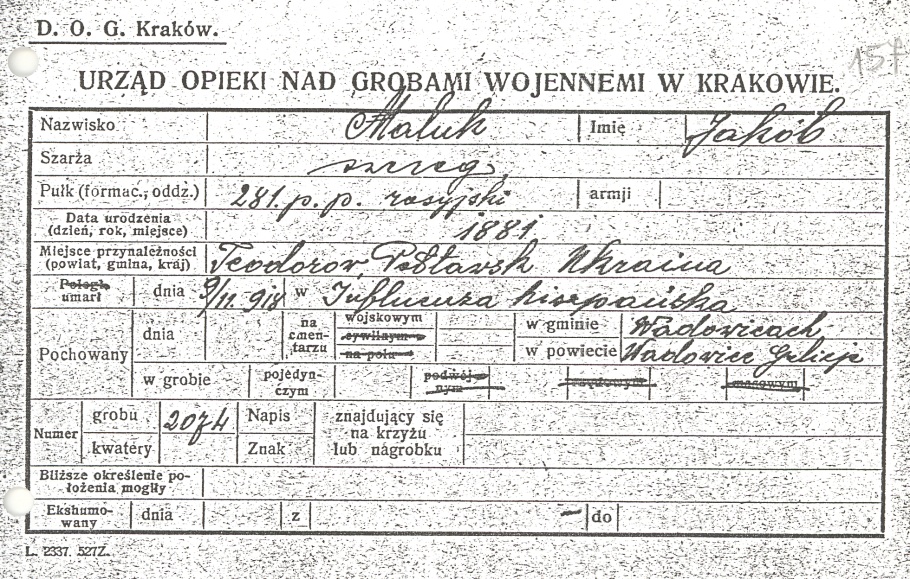 D. O. G. Kraków.
157
URZĄD OPIEKI NAD GROBAMI WOJENNEMI W KRAKOWIE.
Nazwisko Maluk Imię Jakób
Szarża szereg.
Pułk (formac., oddz.) 281. p. p. rosyjski armji
Data urodzenia (dzień, rok, miejsce) 1881
Miejsce przynależności (powiat, gmina, kraj) Teodorov, Poltavsk Ukraina
Poległ umarł dnia 9/11. 918 w Influenza hiszpańska
Pochowany dnia na cmentarzu wojskowym cywilnym na polu w gminie Wadovicach
w powiecie Wadovice Galicje
w grobie pojedyńczym podwójnym masowym
Numer grobu 2074 Napis znajdujący się na krzyżu lub nagrobku
kwatery Znak
Bliższe określenie położenia mogiły
Ekshumowany dnia z – do
L. 2337. 527Z.